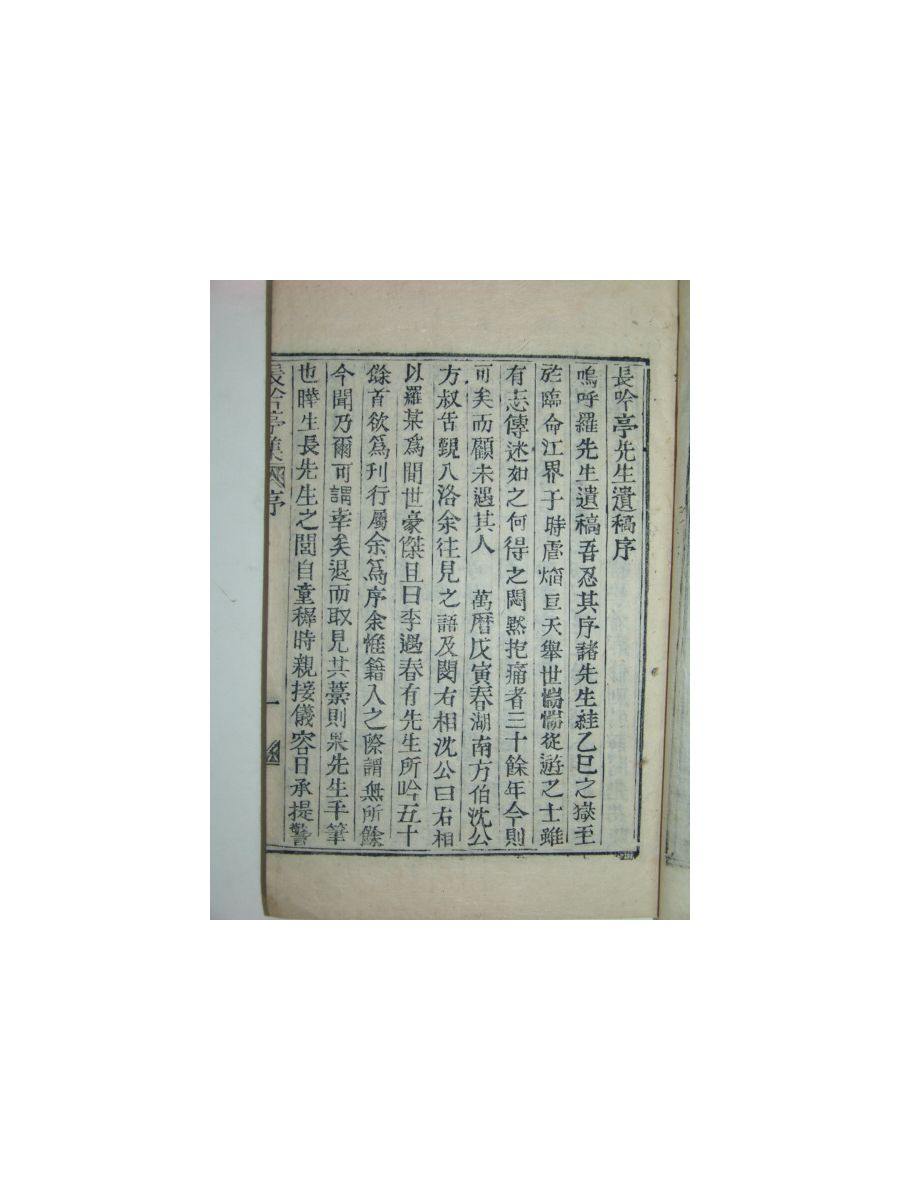 長吟亭先生遺稿序
嗚呼羅先生遺稿吾忍其序諸先生絓乙巳之獄至
於臨命江界于時虐焰亘天舉世惴惴從遊之士雖
有志傳述如之何得之悶默抱痛者三十餘年今則
可矣而顧未遇其人 萬曆戊寅春湖南方伯沈公
方叔告覲入洛余往見之語及閔右相沈公曰右相
以羅某爲間世豪傑且曰李遇春有先生所吟五十
餘首欲爲刊行屬余爲序余惟籍入之際謂無所餘
今聞乃爾可謂幸矣退而取見其藁則果先生手筆
也曄生長先生之閭自童稺時親接儀容日承提警
長吟亭集 序 一